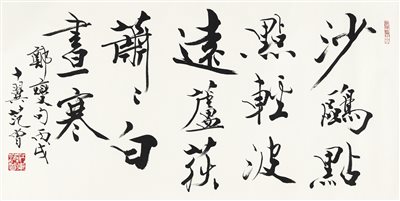 沙鷗點
點輕波
遠蘆荻
蕭〻白
晝寒
鄭燮句丙戌
十翼范曾